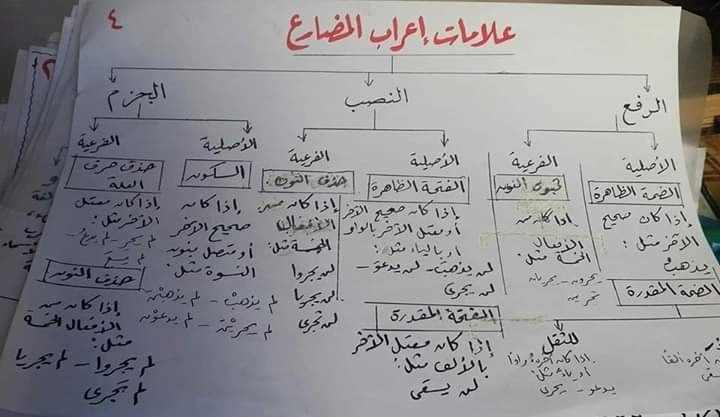 ٤
علامات إعراب المضارع
الرفع
النصب
الجزم
الأصلية
الضمة الظاهرة
إذا كان صحيح
الآخر مثل :
يذهبُ
الضمة المقدرة
آخره ألفا
الفرعية
ثبوت النون
إذا كان من
الأفعال
الخمسة مثل:
يجرون - يجريان
تجرين
للثقل
إذا كان آخره واوا
أو ياء مثل:
يدعو - يجري
الأصلية
الفتحة الظاهرة
إذا كان صحيح الآخر
أو معتل الآخر بالواو
أو بالياء مثل:
لن يذهبَ - لن يدعوَ -
لن يجريَ
الفتحة المقدرة
إذا كان معتل الآخر
بالألف مثل:
لن يسقى
الفرعية
حذف النون
إذا كان من
الأفعال
الخمسة مثل:
لن يجروا
لن يجريا
لن تجري
الأصلية
السكون
إذا كان
صحيح الآخر
أو متصل بنون
النسوة مثل:
لم يذهبْ - لم يذهبْن
لم يجريْن - لم يدعوْن
الفرعية
حذف حرف
العلة
إذا كان معتل
الآخر مثل:
لم يجر - لم يدع
حذف النون
إذا كان من
الأفعال الخمسة
مثل:
لم يجروا - لم يجريا
لم تجري